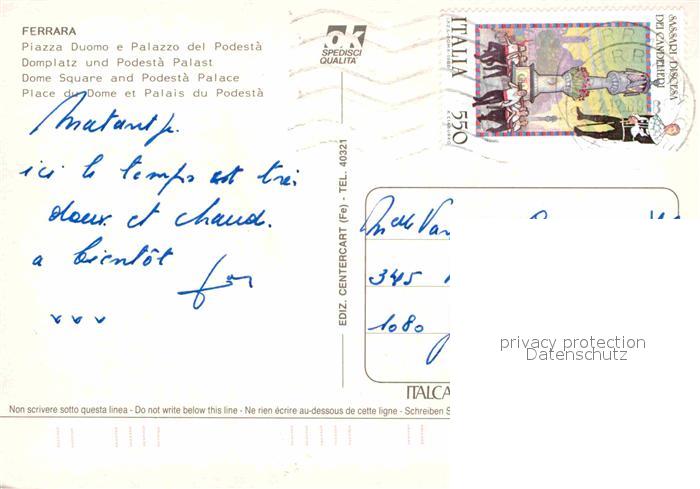 FERRARA
Piazza Duomo e Palazzo del Podestà
Domplatz und Podestà Palast
Dome Square and Podestà Palace
Place du Dome et Palais du Podestà
ok
SPEDISCI
QUALITA'
ITALIA
550
SASSARI-DISCESA
DEI CANDELIERI
ici le temps est très
doux et chaud.
a bientôt
x x x
EDIZ. CENTERCART (Fe) - TEL. 40321
Melle Van
345
1080
privacy protection
Datenschutz
ITALCA
Non scrivere sotto questa linea - Do not write below this line - Ne rien écrire au-dessous de cette ligne - Schreiben S